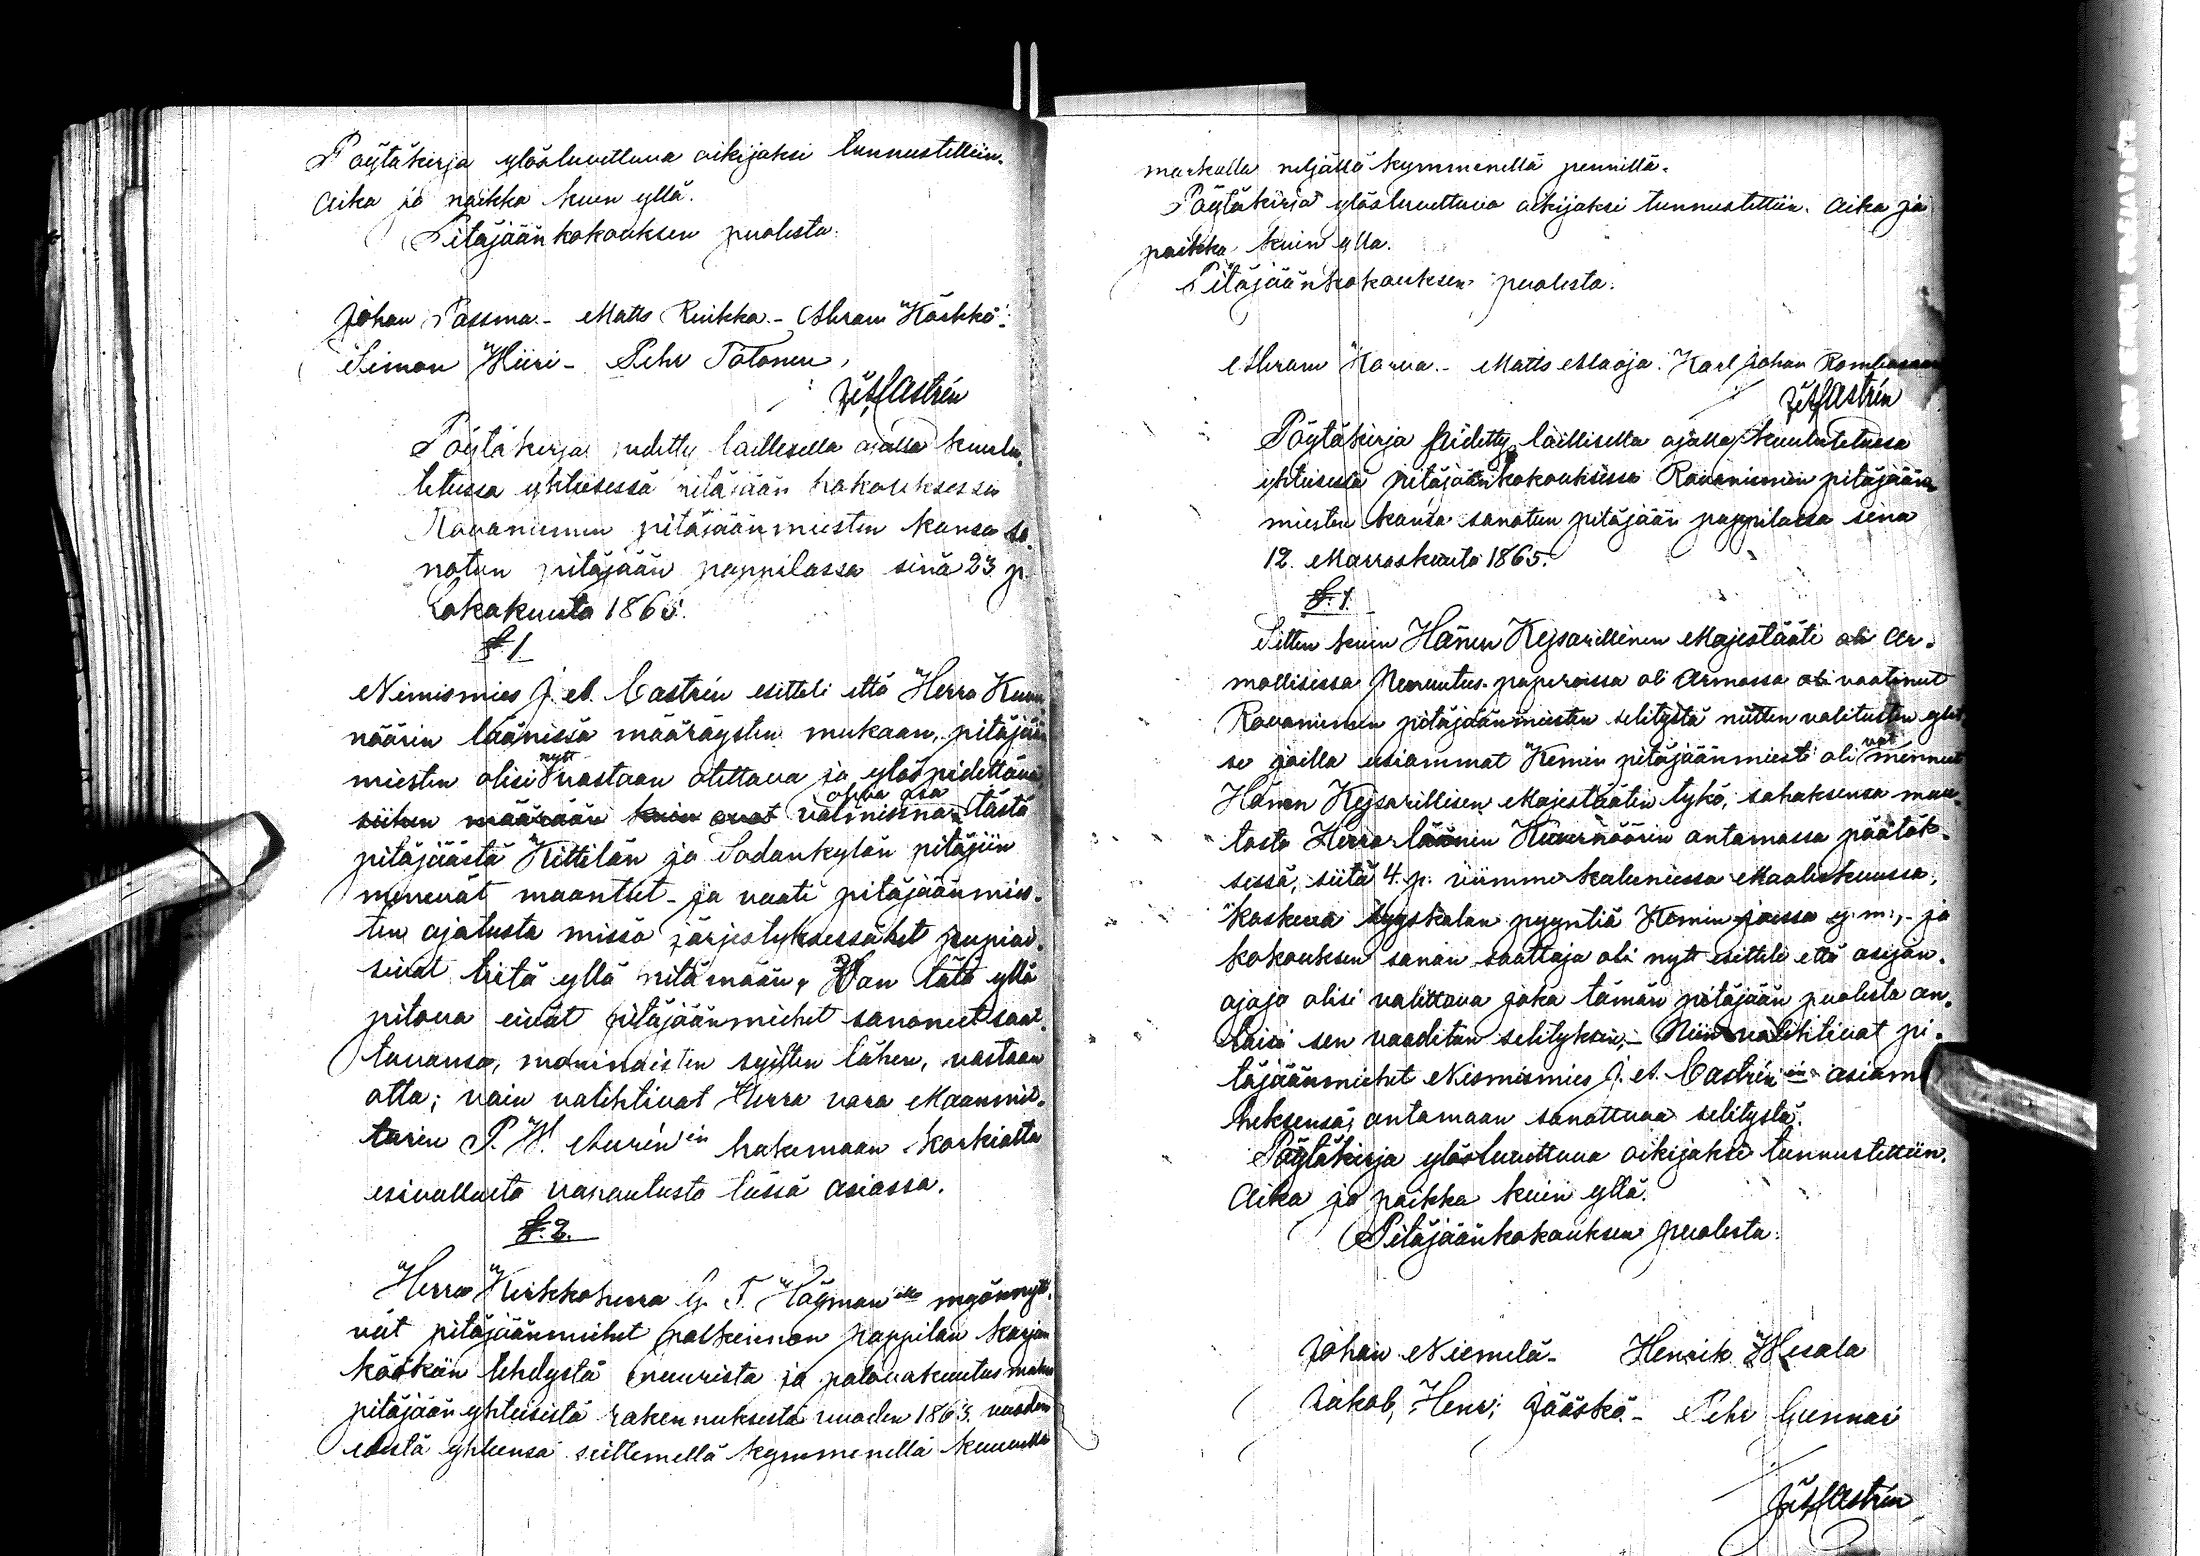 Pöytäkirja ylösluettuna oikijaksi tunnustettiin.
Aika ja paikka kuin yllä.
Pitäjäänkokouksen puolesta:
Johan Passma - Matts Ruikka - Abram Körkkö.
Simon Hiiri - Pehr Tolonen,
Pöytäkirja pidetty laillisella ajalla kuulu-
tetussa yhteisessä pitäjään kokouksessa
Rovaniemen pitäjäänmiesten kansa sa-
notun pitäjään pappilassa sinä 23 p.
Lokakuuta 1865.
§ 1
Nimismies J. A. Castrén esitteli että Herra Kuver-
näärin läänissä määräysten mukaan, pitäjään
miesten olisi nytt vastaan otettava ja ylöspidettävä,
siihen määrään kuin ovat valmisna oleva osa tästä
pitäjäästä Kittilän ja Sodankylän pitäjiin
menevät maantiet - ja vaati pitäjäänmies-
ten ajatusta missä järjestyksessä het
sivat tietä yllä pitämään, Wan tätä yllä
pitova eivät pitäjäänmiehet sanoneet saat-
tavansa, moninaisten syitten tähen, vastaan
otta; vain valihtivat Herra vara Maanmit-
tarin P. W. Aurén in hakemaan korkialta
esivallasta vapautusta tässä asiassa.
§. 2.
Herra Kirkkoherra G. T. Högman ille myönnyti-
vät pitäjäänmiehet palkinnon pappilan karjan
köökiin tehdystä muurista ja palovakuutus maksu
pitäjään yhteisistä rakennuksesta vuoden 1865 vuoden
edestä yhteensä seittemellä kymmenellä kuuella
markalla neljällä kymmenellä pennillä.
Pöytäkirja ylösluettuna oikijaksi tunnustettiin. Aika ja
paikka kuin yllä.
Pitäjäänkokouksen puolesta:
Abram Karva. - Matts Alaoja. Karl Johan
Pöytäkirja pidetty laillisella ajalla kuulutetussa
yhteisessä pitäjäänkokouksessa Rovaniemen pitäjään
miesten kansa sanotun pitäjään pappilassa sinä
12. Marraskuuta 1865.
§. 1.
Sitten kuin Hänen Keisarillinen Majestääti oli Ar-
mollisissa paperoissa oli Armossa oli vaatinut
Rovaniemen pitäjäänmiesten selitystä niitten valitusten
se joilla usiammat Kemin pitäjäänmiesti olivat mennet
Hänen Kejsarillisen Majestäätin tykö, sahaksensa muu-
tosta Herra läänin Kuvernöörin antamassa päätök-
sessä, siitä 4. p. viimme kuluneessa Maaliskuussa,
koskeva syyskalan pyyntiä Kemin joessa y. m., - ja
kokouksen sanan saattaja oli nytt esitteli että asijan-
ajaja olisi valittava joka tämän pitäjään puolesta an-
taisi sen vaaditun selityksen; - Niin valihtivat pi-
täjäänmiehet Nismismies J. A. Castrén in asiam
heksensä, antamaan sanottuaa selitystä.
Pöytäkirja ylösluuettuna oikijaksi tunnustettiin.
Aika ja paikka kuin yllä.
Pitäjäänkokouksen puolesta:
Johan Niemelä - Henrik Wesala
Jakob, Henr; Jääskö - Pehr Gunnari